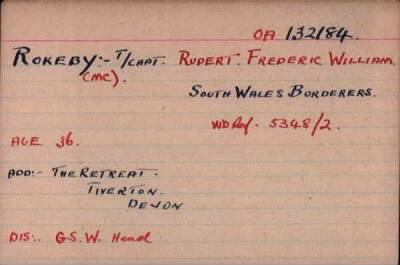 OA 132184.
ROKEBY:- T/CAPT. RUPERT. FREDERIC WILLIAM.
(MC).
SOUTH WALES BORDERERS.
WD Ref. 5348/2.
AGE 36.
ADD:- THE RETREAT.
TIVERTON.
DEVON
DIS:. G.S.W. Head